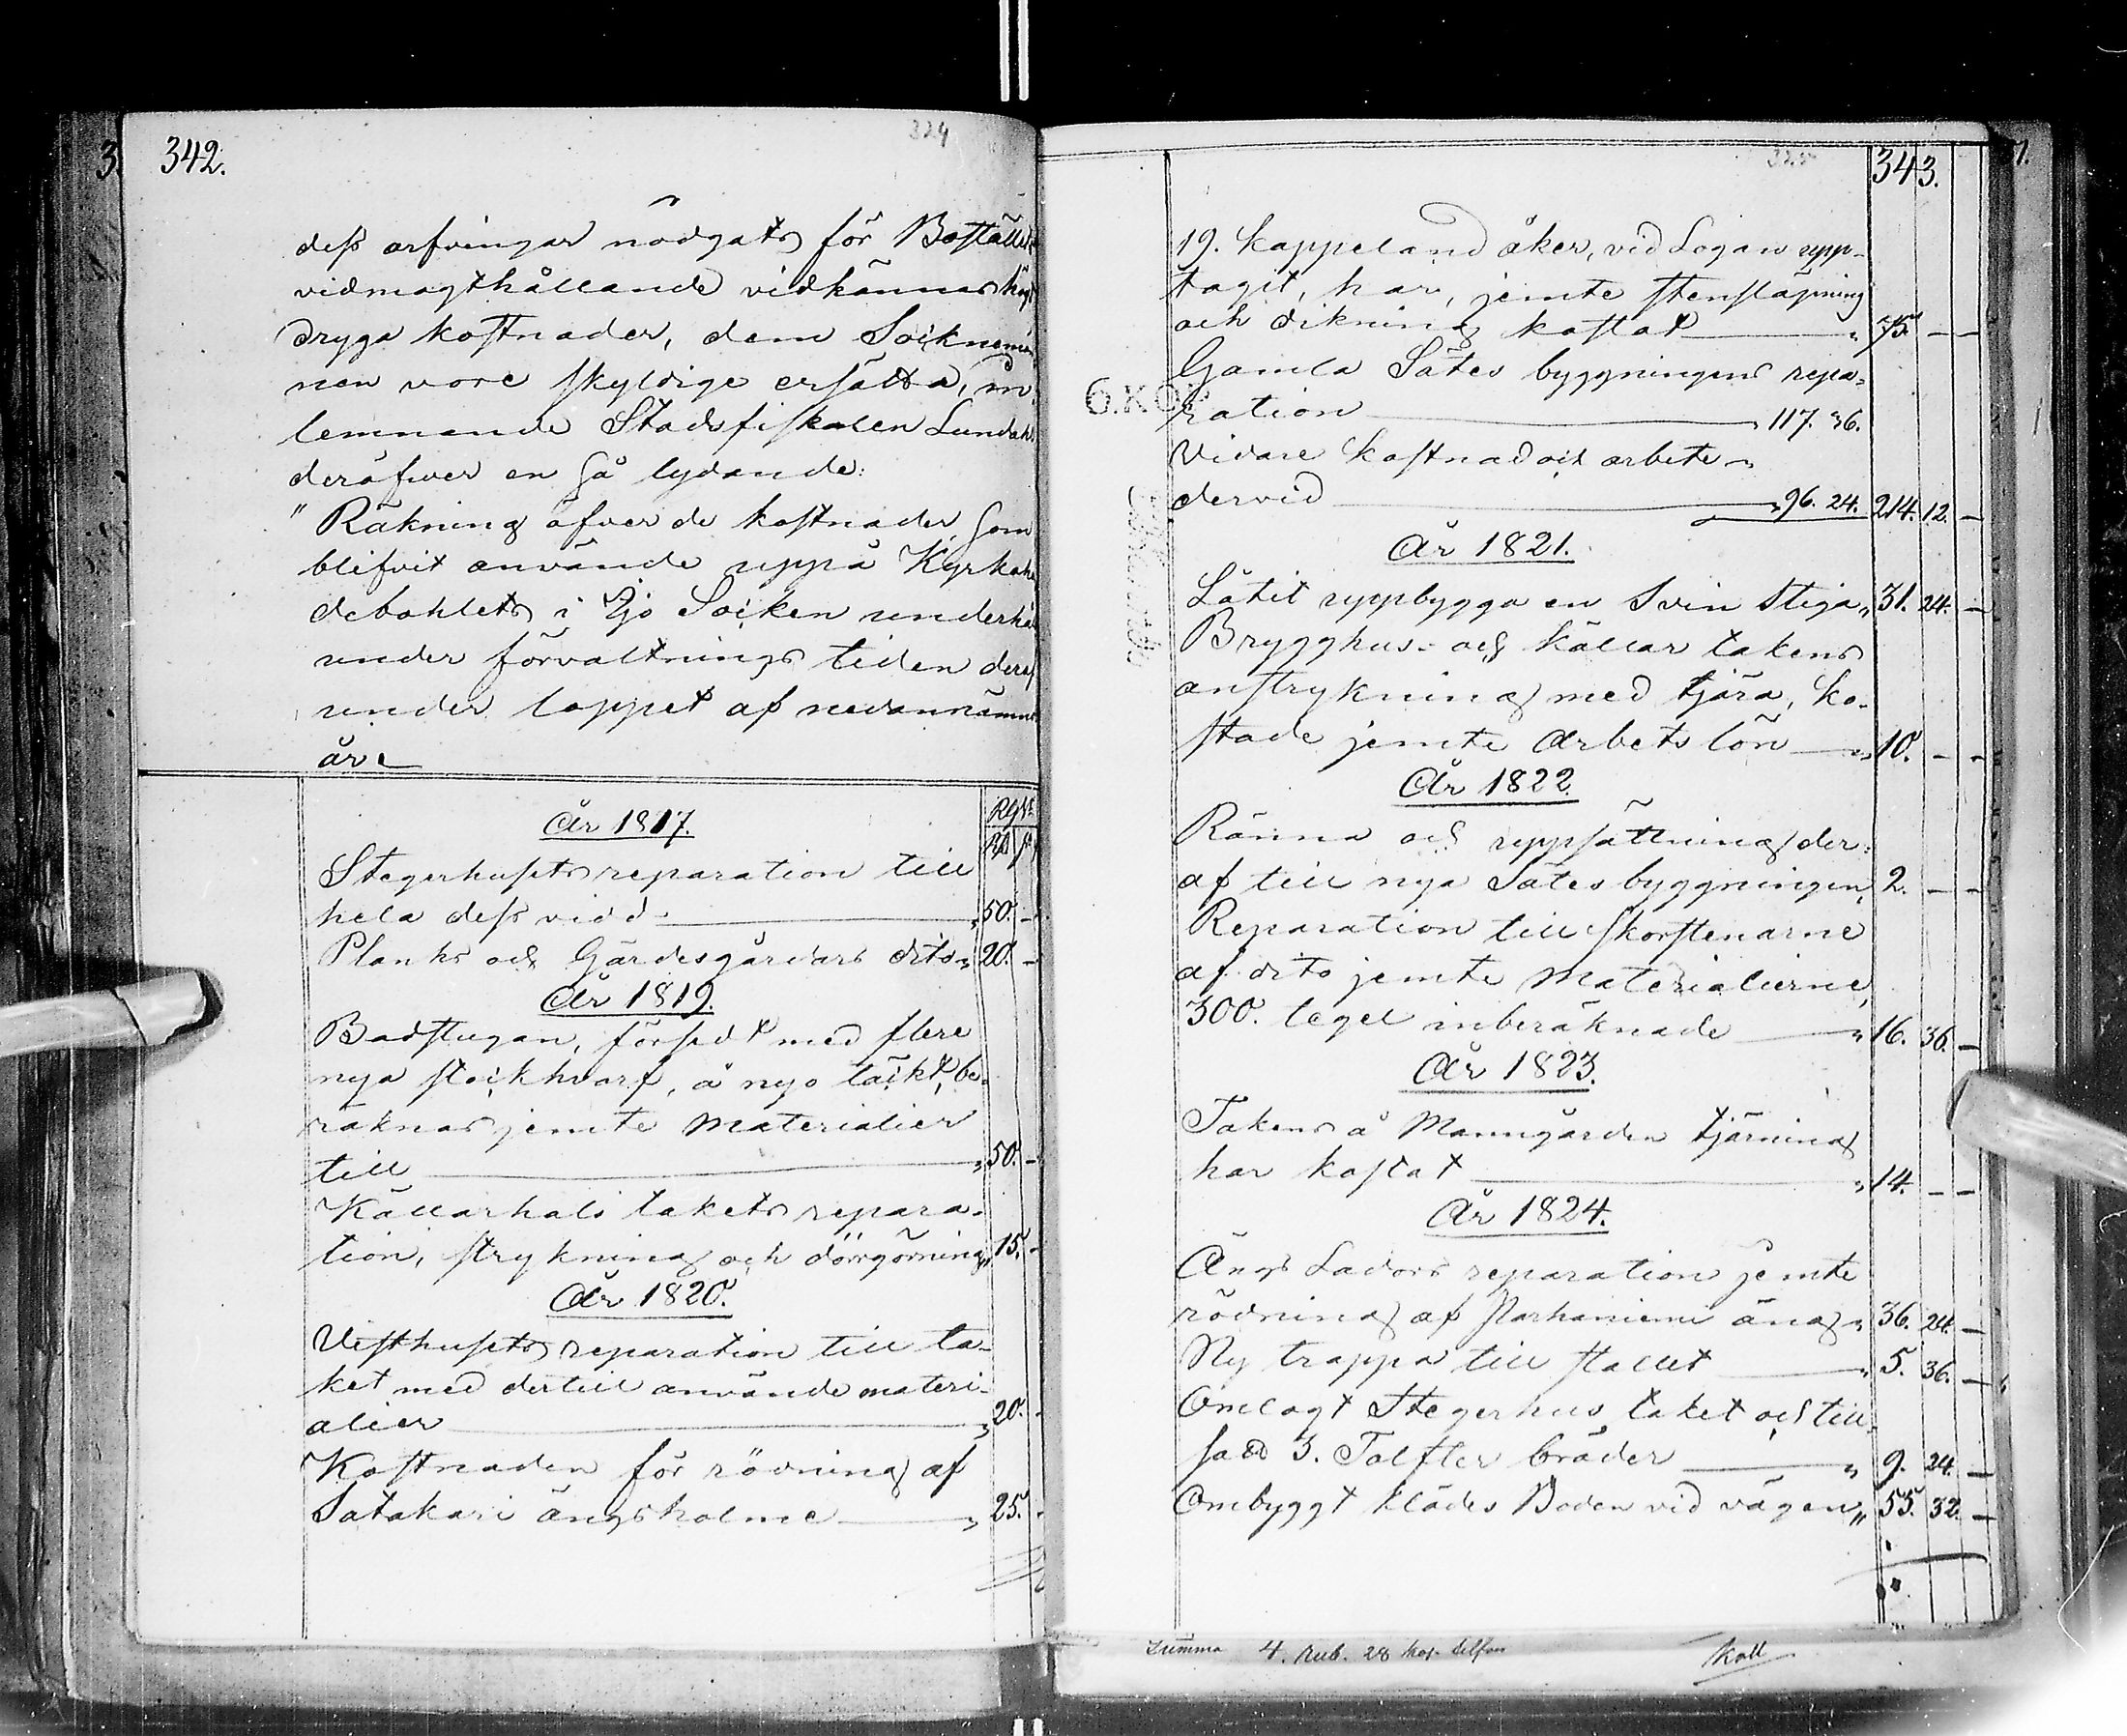 342.
324
dess arfvingar nödgats för Boställets
vidmagthållande vidkännas högst
dryga kostnader, dem Sockneman
nen vore skyldige ersätta, in
lemnande Stadsfiskalen Lundahl
deröfver en så lydande:
"Räkning öfver de kostnader, som
blifvit använde uppå Kyrkoher
debohlets i Tjo Socken underhåll
under förvaltnings tiden deraf
under loppet af nedannämnde
år
År 1817.
Stegerhusets reparation till
hela dess vidd " 50. -
Planks och Gärdesgårdars dito " 20. -
År 1819.
Badstugan, försedt med flere
nya stockhvarf, å nyo täckt, be-
räknas jemte Materialier
till " 50. -
Källarhals takets repara-
tion, strykning och dörrgörning " 15. -
År 1820.
Visthusets reparation till ta-
ket med dertill använde materi-
alier " 20. -
Kostnaden för rödning af
Satakari ängsholme " 25. -
325
343.
19. kappeland åker, vid Logan upp-
tagit, har, jemte stensläpning
och dikning kostat " 75 - -
Gamla Sätes byggningens repa-
ration " 117. 36.
6. KOP
Vidare kostnad och arbete
dervid " 96. 24. 214. 12. -
År 1821.
Låtit uppbygga en Svin Stiga " 31. 24. -
Brygghus- och källar takens
anstrykning med tjära, ko-
stade jemte Arbetslön " 10. - -
År 1822.
Ränna och uppsättning der-
af till nya Sätes byggningen, 2. - -
Reparation till Skorstenarne
af dito jemte Materialierne,
300. tegel inberäknade " 16. 36. -
År 1823.
Takens å Manngården tjärning
har kostat " 14. - -
År 1824.
Ängs Ladors reparation jemte
rödning af Parhaniemi äng " 36. 24. -
Ny trappa till stallet " 5. 36. -
Omlagt Stegerhus taket och till-
sad 3. Tolfter bräder " 9. 24. -
Ombyggt klädes Boden vid vägen " 55. 32. -
Summa 4. Rub. 28 kop. silfver